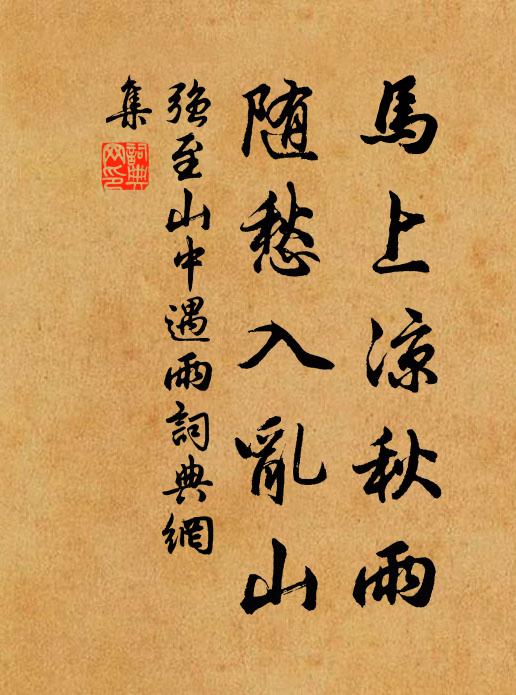 馬上涼秋雨
隨愁入亂山
強至山中遇雨詞典網
集
詞典
网印